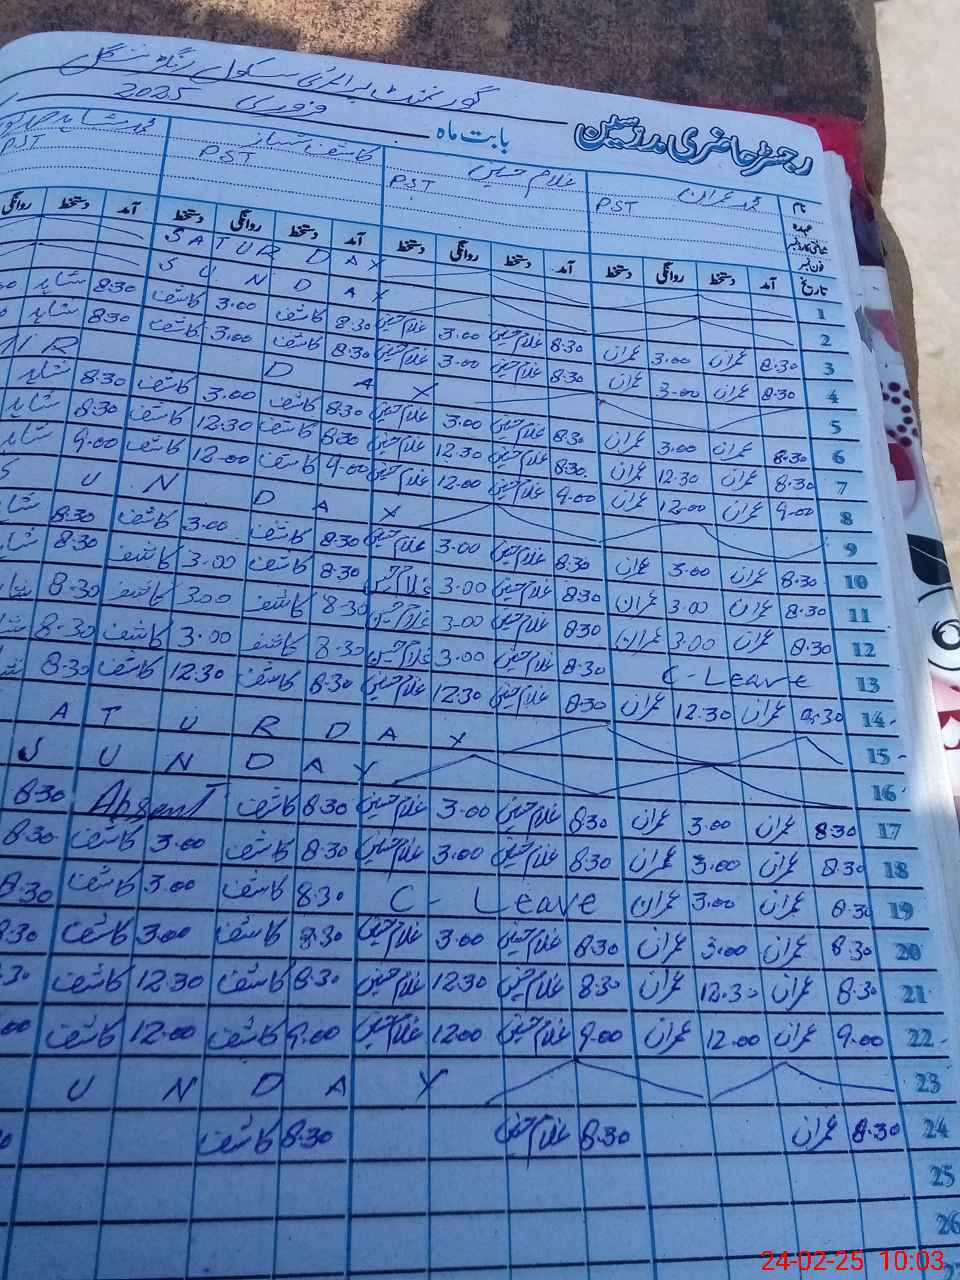 گورنمنٹ پرائمری سکول
رجسٹر حاضری مدرسین بابت ماہ فروری 2025
نام محمد عمران غلام حسین کاشف
عہدہ PST PST PST PST
فون نمبر
تاریخ آمد دستخط روانگی دستخط آمد دستخط روانگی دستخط آمد دستخط روانگی دستخط آمد دستخط روانگی
1 SATURDAY
2 SUNDAY
3 8:30 عمران 3:00 عمران 8:30 غلام حسین 3:00 غلام حسین 8:30 کاشف 3:00 کاشف 8:30 شاہد
4 8:30 عمران 3:00 عمران 8:30 غلام حسین 3:00 غلام حسین 8:30 کاشف 3:00 کاشف 8:30 شاہد
5 DAY
6 8:30 عمران 3:00 عمران 8:30 غلام حسین 3:00 غلام حسین 8:30 کاشف 3:00 کاشف 8:30 شاہد
7 8:30 عمران 12:30 عمران 8:30 غلام حسین 12:30 غلام حسین 8:30 کاشف 12:30 کاشف 8:30 شاہد
8 9:00 عمران 12:00 عمران 9:00 غلام حسین 12:00 غلام حسین 9:00 کاشف 12:00 کاشف 9:00 شاہد
9 SUNDAY
10 8:30 عمران 3:00 عمران 8:30 غلام حسین 3:00 غلام حسین 8:30 کاشف 3:00 کاشف 8:30
11 8:30 عمران 3:00 عمران 8:30 غلام حسین 3:00 غلام حسین 8:30 کاشف 3:00 کاشف 8:30
12 8:30 عمران 3:00 عمران 8:30 غلام حسین 3:00 غلام حسین 8:30 کاشف 3:00 کاشف 8:30
13 C-Leave 8:30 غلام حسین 3:00 غلام حسین 8:30 کاشف 3:00 کاشف 8:30
14 8:30 عمران 12:30 عمران 8:30 غلام حسین 12:30 غلام حسین 8:30 کاشف 12:30 کاشف 8:30
15 ATURDAY
16 SUNDAY
17 8:30 عمران 3:00 عمران 8:30 غلام حسین 3:00 غلام حسین 8:30 کاشف Absent 8:30
18 8:30 عمران 3:00 عمران 8:30 غلام حسین 3:00 غلام حسین 8:30 کاشف 3:00 کاشف 8:30
19 8:30 عمران 3:00 عمران C-Leave 8:30 کاشف 3:00 کاشف 8:30
20 8:30 عمران 3:00 عمران 8:30 غلام حسین 3:00 غلام حسین 8:30 کاشف 3:00 کاشف 8:30
21 8:30 عمران 12:30 عمران 8:30 غلام حسین 12:30 غلام حسین 8:30 کاشف 12:30 کاشف
22 9:00 عمران 12:00 عمران 9:00 غلام حسین 12:00 غلام حسین 9:00 کاشف 12:00 کاشف
23 UNDAY
24 8:30 عمران 8:30 غلام حسین 8:30 کاشف
25
26
24-02-25 10:03